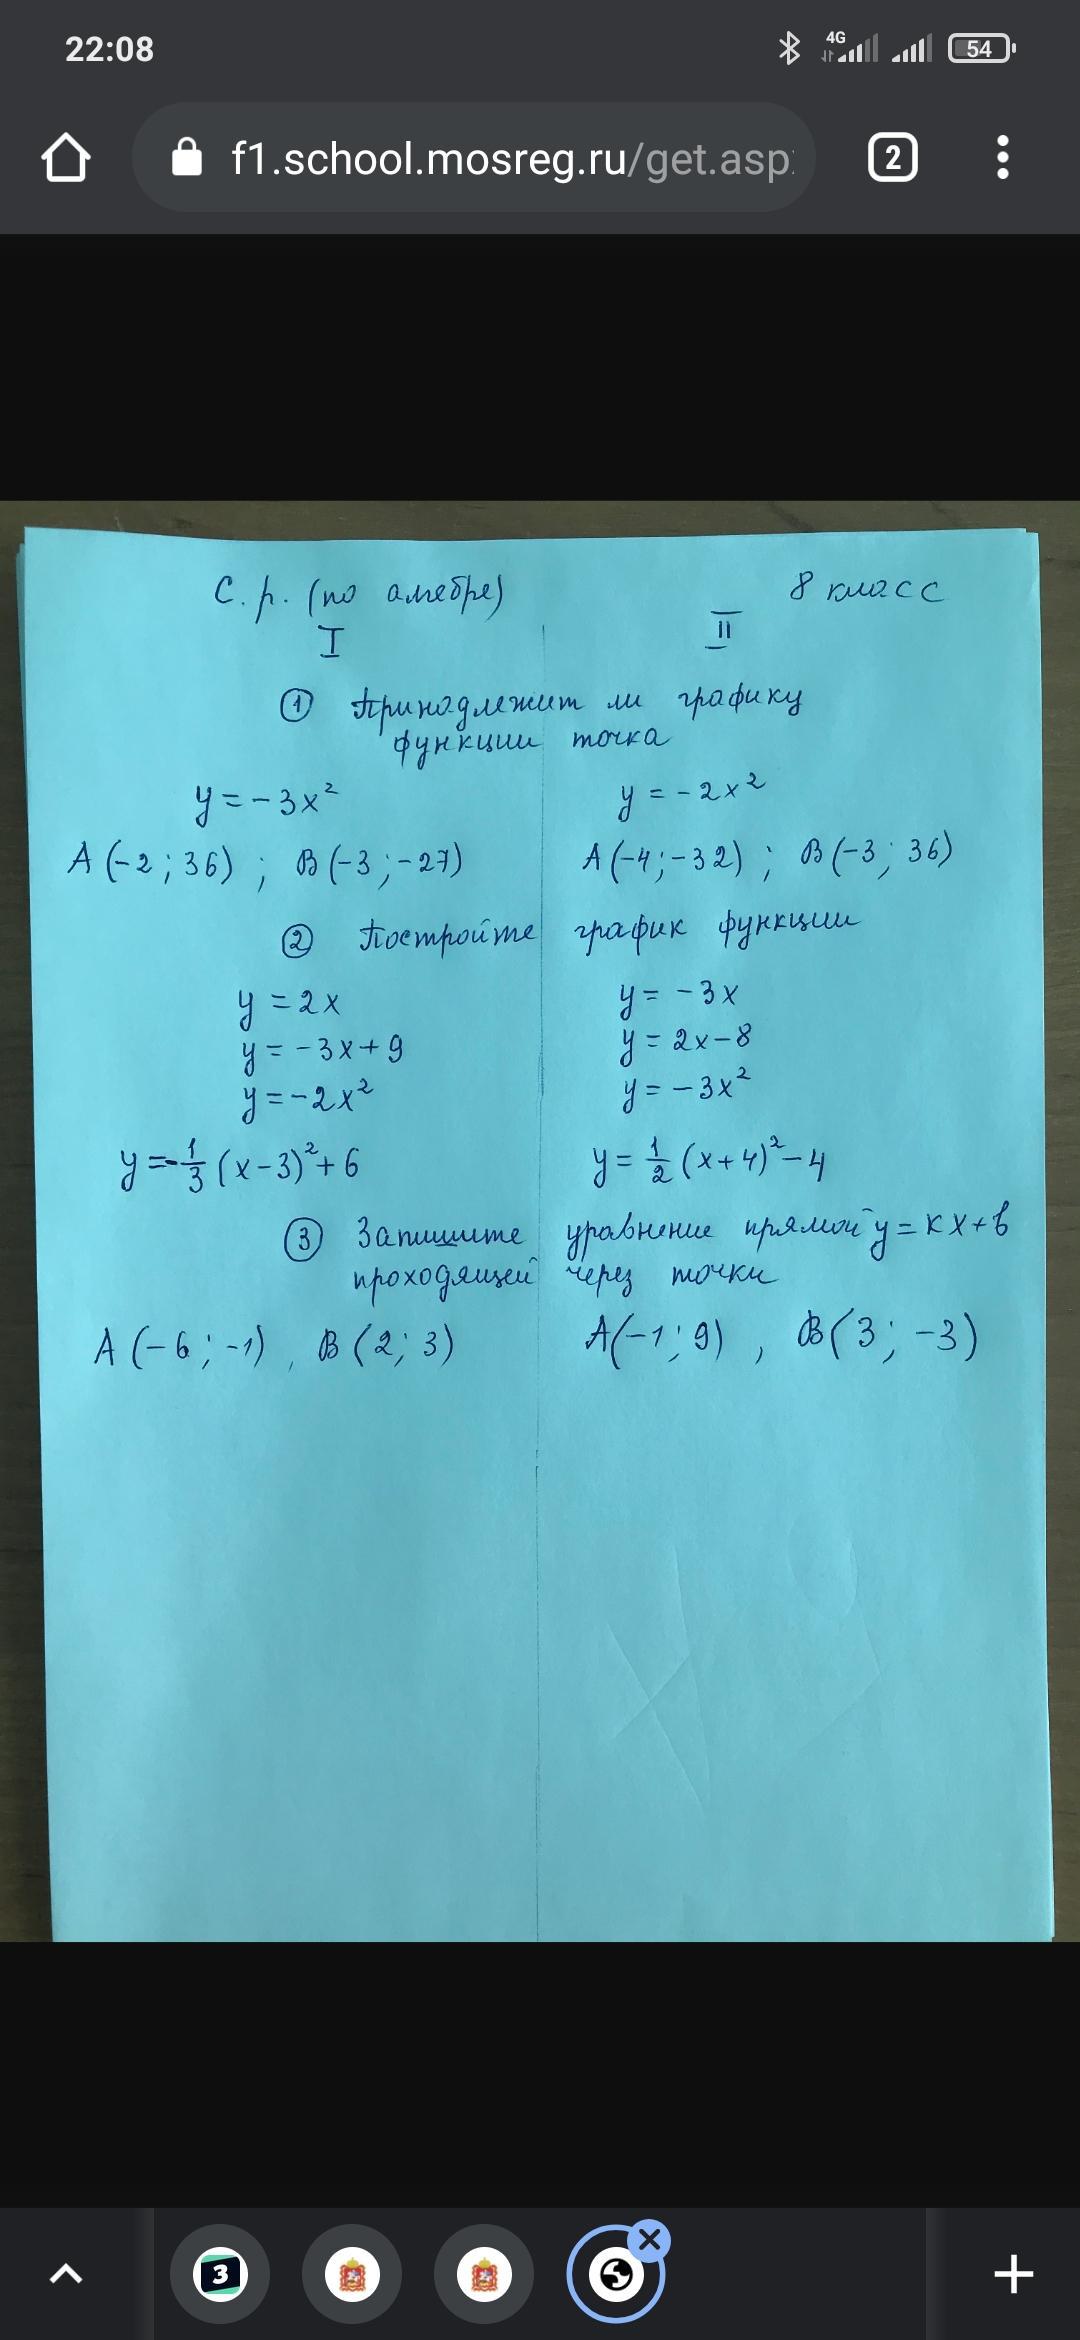 22:08
4G
54
f1.school.mosreg.ru/get.asp
2
С.р. (по алгебре) 8 класс
I II
① Принадлежит ли графику
функции точка
y = -3x² y = -2x²
A(-2; 36); B(-3; -27) A(-4; -32); B(-3; 36)
② Постройте график функции
y = 2x y = -3x
y = -3x+9 y = 2x-8
y = -2x² y = -3x²
y = -1/3 (x-3)²+6 y = 1/2 (x+4)²-4
③ Запишите уравнение прямой y = кx+b
проходящей через точки
A(-6; -1), B(2; 3) A(-1; 9), B(3; -3)
3